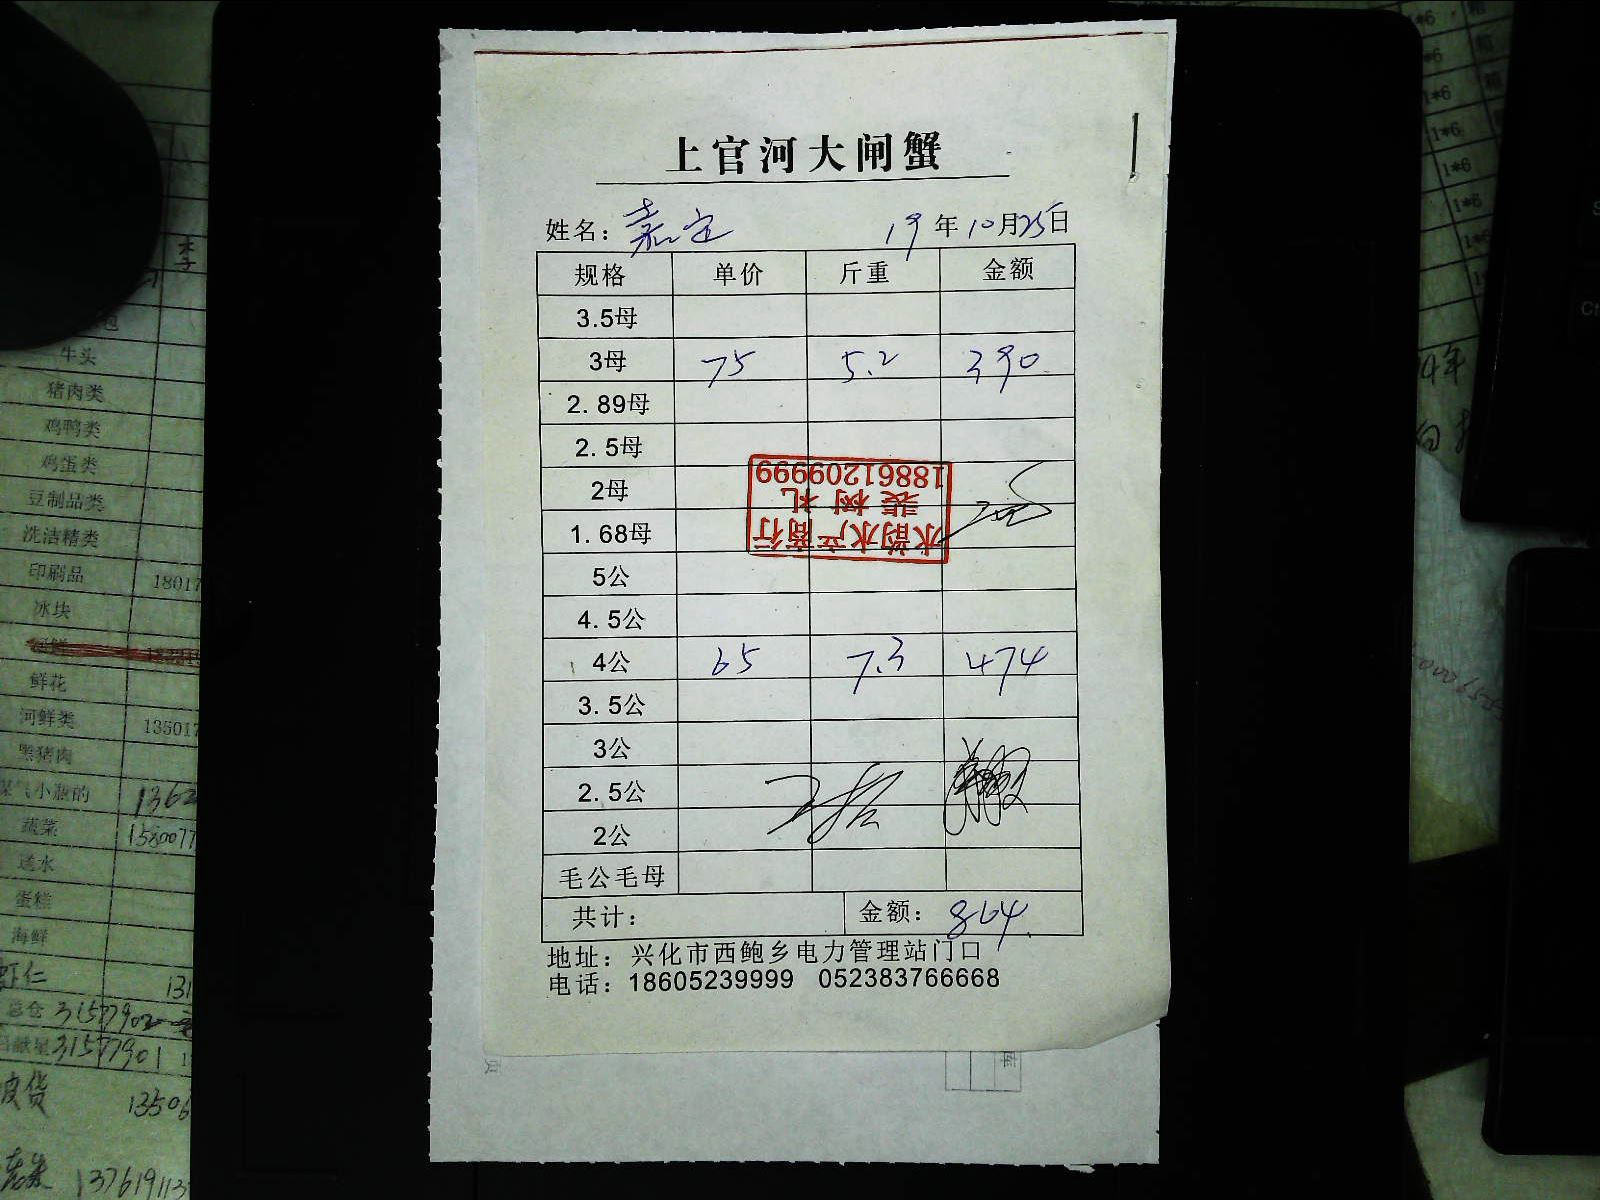 上官河大闸蟹
姓名：嘉定 19年10月25日
规格 单价 斤重 金额
3.5母
3母 75 5.2 390
2.89母
2.5母
2母
1.68母
5公
4.5公
4公 65 7.3 474
3.5公
3公
2.5公
2公
毛公毛母
共计： 金额：864
地址：兴化市西鲍乡电力管理站门口
电话：18605239999 052383766668
水韵水产商行
裴树礼
18861209999
牛头
猪肉类
鸡鸭类
鸡蛋类
豆制品类
洗洁精类
印刷品 18017
冰块
鲜花
河鲜类 135017
黑猪肉
1362
蔬菜 1580077
送水
蛋糕
海鲜
虾仁 131
总仓 31577902
31577901
皮货 13506
老朱 137619113
1*6
1*6
1*6
1*6
1*6